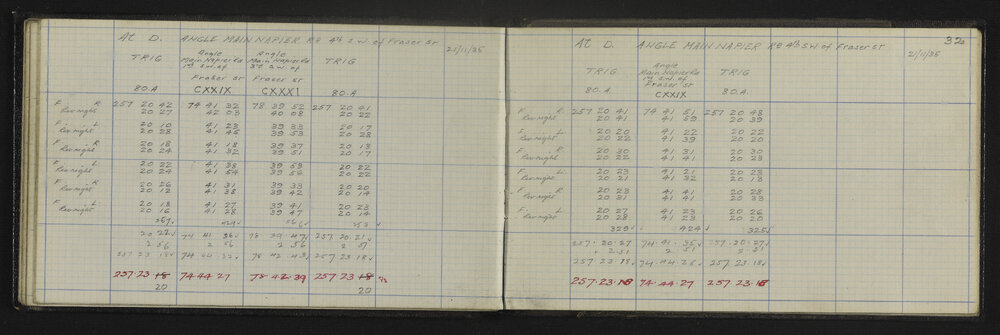 At D. ANGLE MAIN NAPIER RD 4th S.W. of Fraser St 21/11/35
TRIG Angle Main Napier Rd 1st S.W. of Fraser St Angle Main Napier Rd 3rd S.W. of Fraser St TRIG
80.A CXXIX CXXXI 80.A
F R 257 20 42 74 41 32 78 39 52 257 20 41
Rev night 20 27 42 03 40 08 20 22
F L 20 10 41 23 39 33 20 17
Rev night 20 28 41 46 39 53 20 28
F R 20 18 41 18 39 37 20 13
Rev night 20 24 41 32 39 51 20 17
F L 20 22 41 38 39 53 20 22
Rev night 20 24 41 54 39 56 20 22
F R 20 26 41 31 39 33 20 20
Rev night 20 12 41 38 39 42 20 14
F L 20 18 41 27 39 41 20 23
Rev night 20 16 41 28 39 47 20 14
20 22 74 41 36 78 39 47 257 20 21
2 56 2 56 2 56 2 57
257 23 18 78 42 43 257 23 18
257 23 18 74 44 27 78 42 39 257 23 18
20 20
32
At D. ANGLE MAIN NAPIER RD 4th S.W. of Fraser St 21/11/35
TRIG Angle Main Napier Rd 1st S.W. of Fraser St TRIG
80.A CXXIX 80.A.
F R 257 20 41 74 41 51 257 20 48
Rev night 20 41 41 59 20 39
F L 20 20 41 22 20 22
Rev night 20 22 41 39 20 20
F R 20 30 41 31 20 30
Rev night 20 22 41 41 20 23
F L 20 23 41 21 20 23
Rev night 20 21 41 32 20 13
F R 20 23 41 41 20 28
Rev night 20 31 41 41 20 33
F L 20 27 41 23 20 26
Rev night 20 28 41 23 20 20
329 424 325
257.20.27 74.41.35 257.20.27
2.51 2.51 2.51
257.23.18 74.44.26 257.23.18
257.23.18 74.44.27 257.23.18